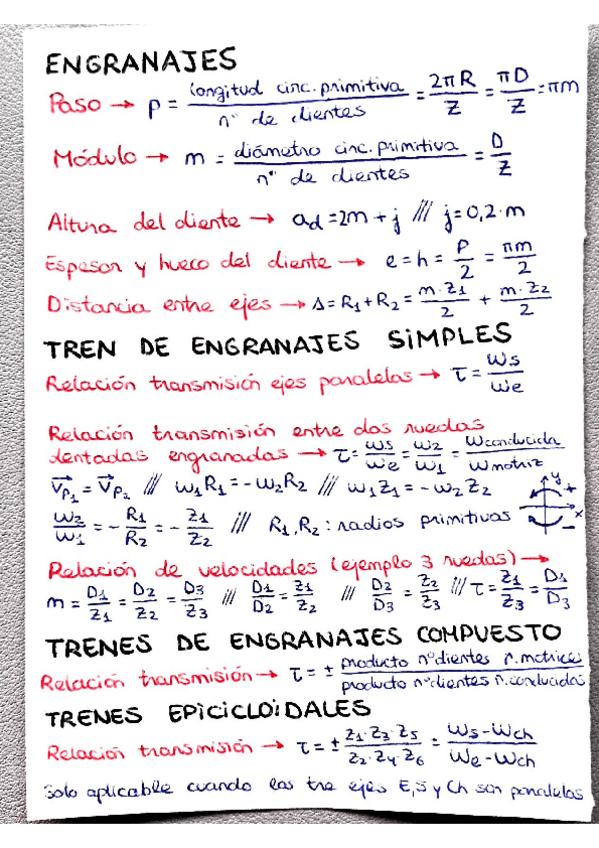 ENGRANAJES
Paso → p = longitud circ. primitiva / nº de dientes = 2πR / Z = πD / Z = πm
Módulo → m = diámetro circ. primitiva / nº de dientes = D / Z
Altura del diente → ad = 2m + j /// j = 0,2·m
Espesor y hueco del diente → e = h = P / 2 = πm / 2
Distancia entre ejes → Δ = R1 + R2 = m·Z1 / 2 + m·Z2 / 2
TREN DE ENGRANAJES SIMPLES
Relación transmisión ejes paralelos → τ = ws / we
Relación transmisión entre dos ruedas
dentadas engranadas → τ = ws / we = w2 / w1 = wconducida / wmotriz
Vp1 = Vp2 /// w1R1 = -w2R2 /// w1Z1 = -w2Z2
w2 / w1 = - R1 / R2 = - Z1 / Z2 /// R1, R2 : radios primitivos
y
+
x
-
Relación de velocidades (ejemplo 3 ruedas) →
m = D1 / Z1 = D2 / Z2 = D3 / Z3 /// D1 / D2 = Z1 / Z2 /// D2 / D3 = Z2 / Z3 /// τ = Z1 / Z3 = D1 / D3
TRENES DE ENGRANAJES COMPUESTO
Relación transmisión → τ = ± producto nºdientes r.motrices / producto nºdientes r.conducidas
TRENES EPICICLOIDALES
Relación transmisión → τ = ± Z1·Z3·Z5 / Z2·Z4·Z6 = ws - wch / we - wch
Solo aplicable cuando los tre ejes E, S y Ch son paralelos